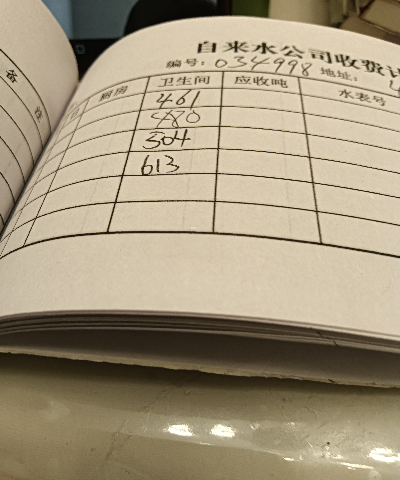 备注
自来水公司收费
编号: 034998 地址:
厨房 卫生间 应收吨 水表号
461
480
504
613